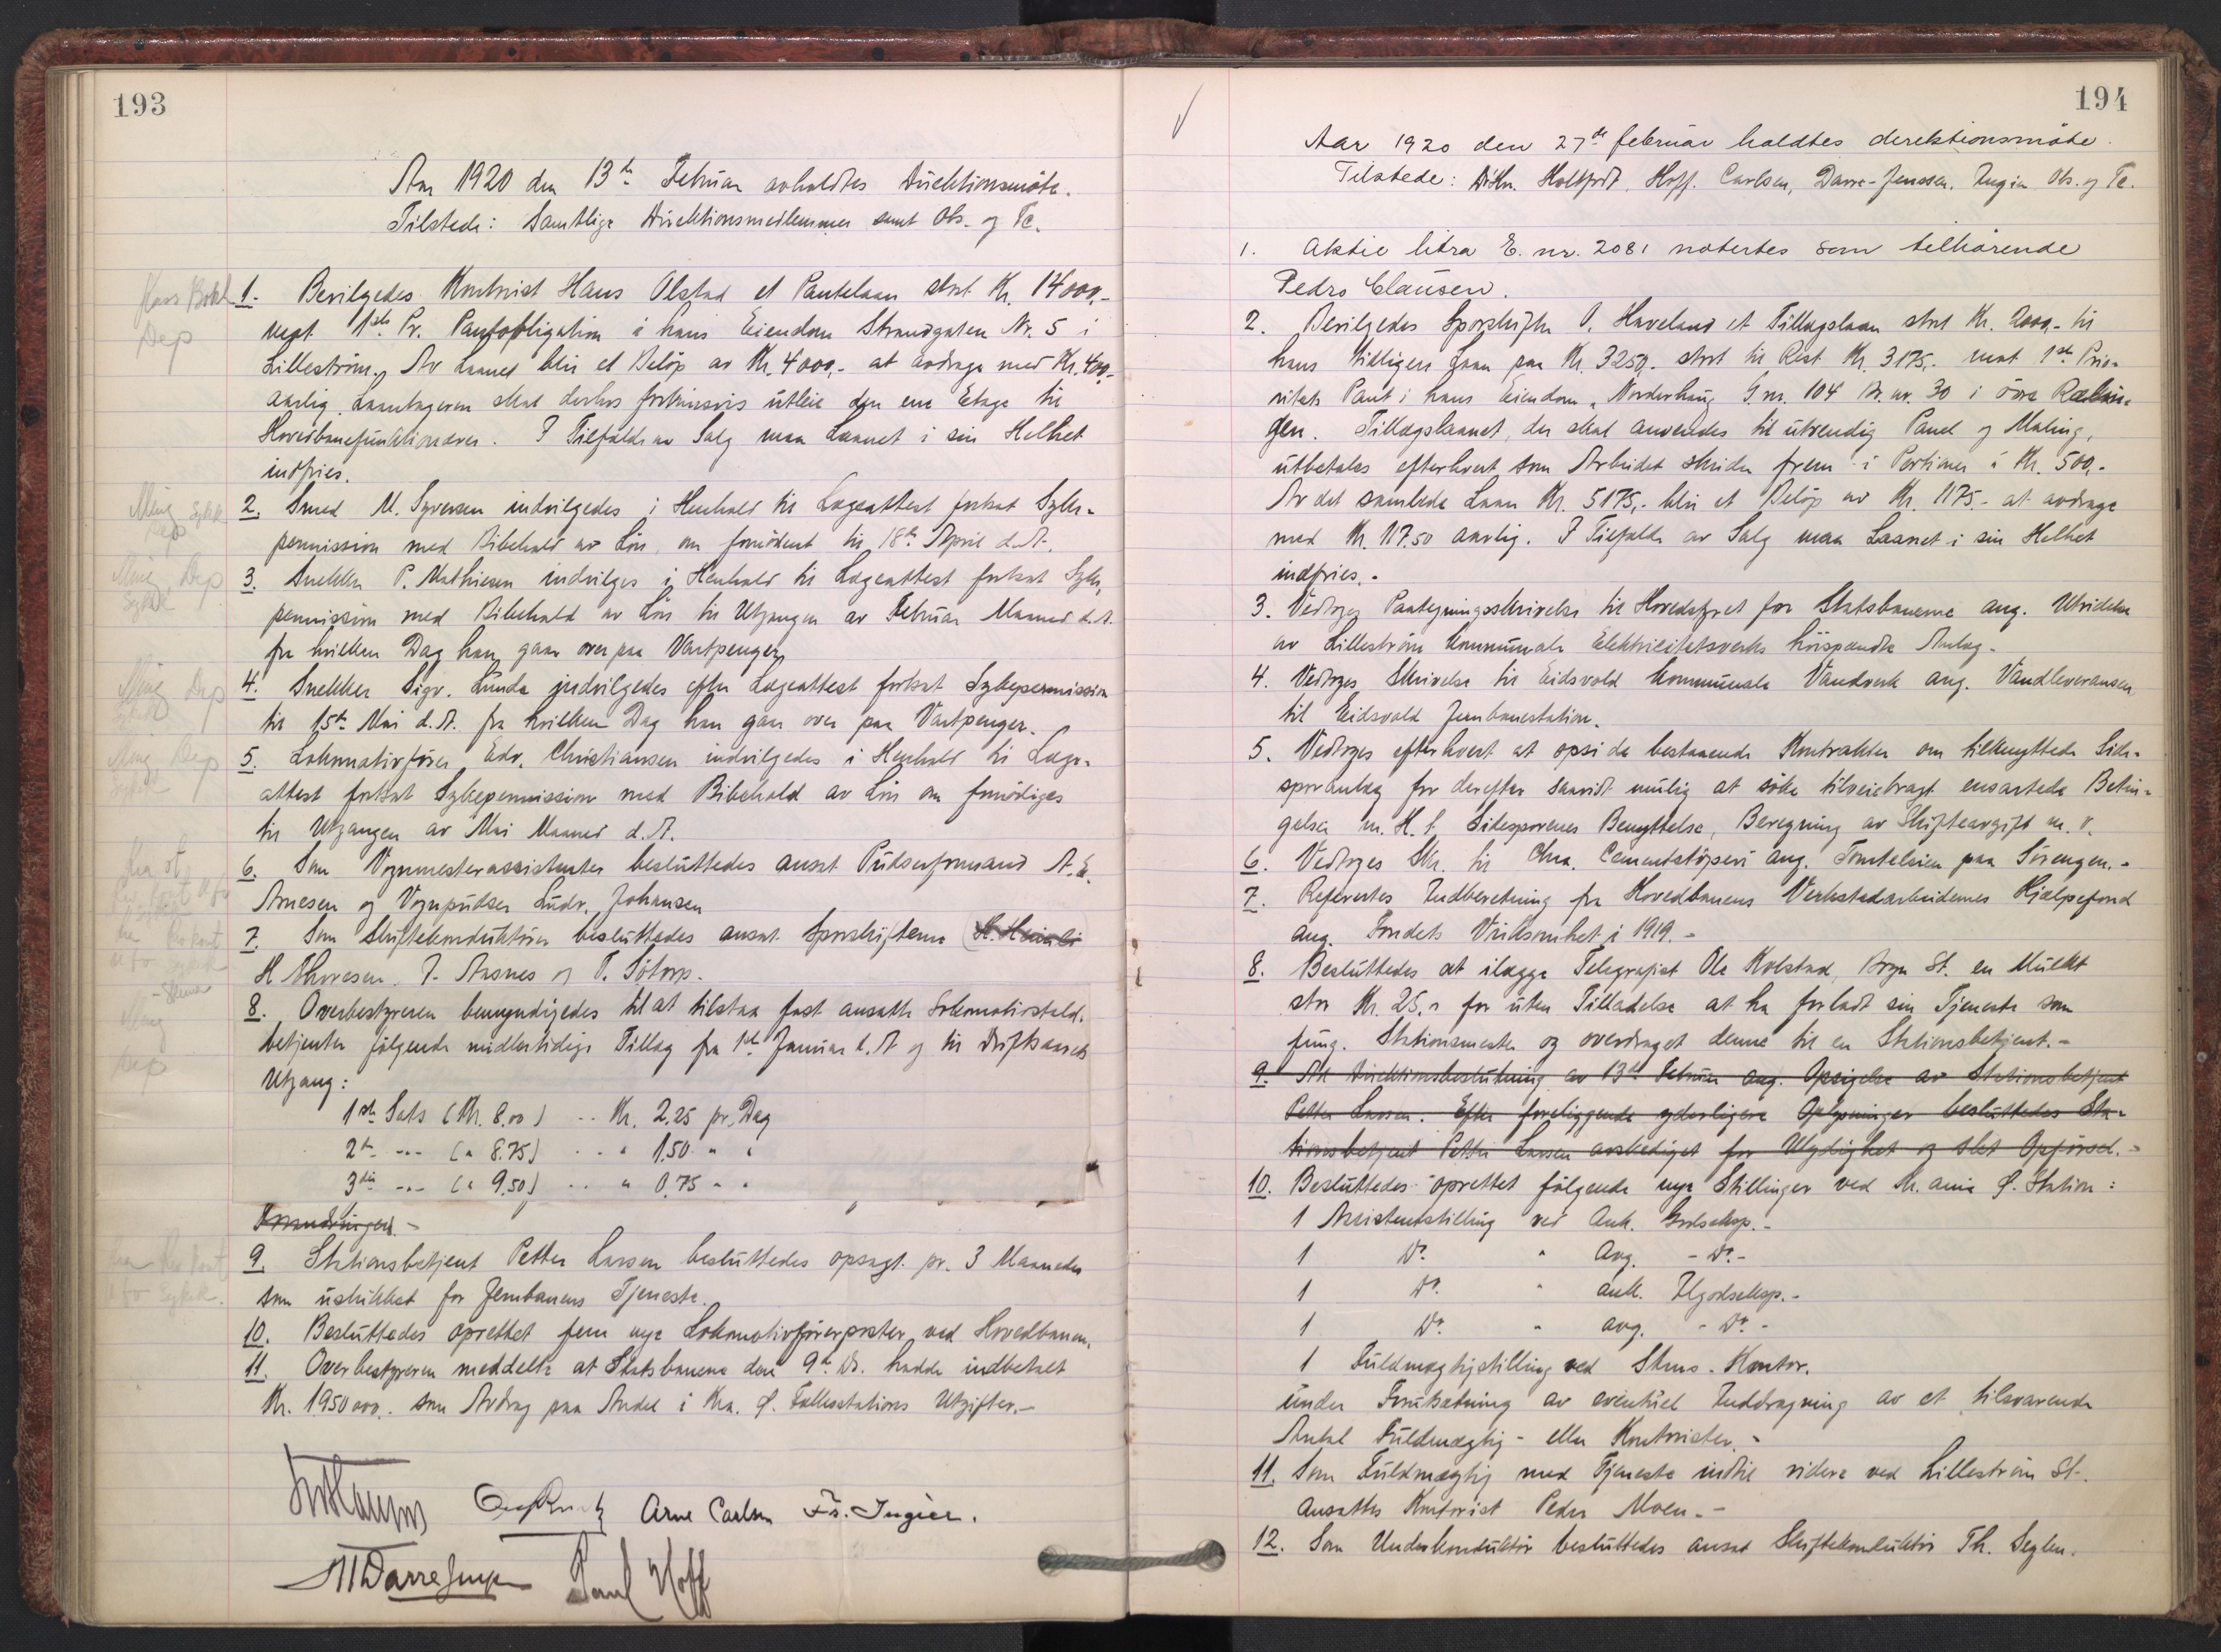 193
Aar 1920 den 13de Februar avholdtes Direktionsmøte.
Tilstede: Samtlige Direktionsmedlemmer samt Obs. og Tc.
1. Bevilgedes Kontorist Hans Olstad et Pantelaan stort Kr. 14000,-
mot 1ste Pr. Pantobligation i hans Eiendom Strandgaten Nr. 5 i
Lillestrøm. Av Laanet blir et Beløp av Kr. 4000,- at avdrage med Kr. 400,-
aarlig. Laantageren skal derhos fortrinsvis utleie den ene Etage til
Hovedbanefunktionærer. I Tilfælde av Salg maa Laanet i sin Helhet
indfries.
2. Smed M. Syversen indvilgedes i Henhold til Lægeattest fortsat Syke-
permission med Bibehold av Løn, om fornødent til 18de April d.A.
3. Snekker P. Mathiesen indvilges i Henhold til Lægeattest fortsat Syke-
permission med Bibehold av Løn til Utgangen av Februar Maaned d.A.
fra hvilken Dag han gaar over paa Vartpenger.
4. Snekker Sigv. Lunde indvilgedes efter Lægeattest fortsat Sykepermission
til 15de Mai d.A. fra hvilken Dag han gaar over paa Vartpenger.
5. Lokomotivfører Edv. Christiansen indvilgedes i Henhold til Læge-
attest fortsat Sykepermission med Bibehold av Løn om fornødiges
til Utgangen av Mai Maaned d.A.
6. Som Vognmesterassistenter besluttedes ansat Pudserformand A. E.
Arnesen og Vognpudser Ludv. Johansen
7. Som Skiftekonduktører besluttedes ansat Sporskifterne
H. Thoresen, J. Aasnes og T. Sötorp.
8. Overbestyreren bemyndigedes til at tilstaa fast ansatte Lokomotivstald-
betjenter følgende midlertidige Tillæg fra 1ste Januar d.A og til Driftsaarets
Utgang:
1ste Sats (Kr. 8.00) .. Kr. 2.25 pr. Dag
2den -.- (" 8.75) .. " 1,50 " "
3die -.- (" 9,50) .. " 0,75 " "
9. Stationsbetjent Petter Larsen besluttedes opsagt pr. 3 Maaneder
som uskikket for Jernbanens Tjeneste.
10. Besluttedes oprettet fem nye Lokomotivførerposter ved Hovedbanen.
11. Overbestyreren meddelte at Statsbanene den 9de ds. hadde indbetalt
Kr. 1950000,- som Avdrag paa Andel i Kra. Ø. Fællesstations Utgifter.-
Arne Carlsen Fr. Ingier.
Darre Jensen Paul Hoff
194
Aar 1920 den 27de februar holdtes direktionsmøte.
Tilstede: Hoff. Carlsen, Darre-Jenssen. Ingier Obs. og Tc.
1. Aktie litra E. nr. 2081 notertes som tilhørende
Pedro Clausen.
2. Bevilgedes Sporskifter O. Haveland et Tillægslaan stort Kr. 2000,- til
hans tidligere Laan paa Kr. 3250,- stort til Rest Kr. 3175,- mot 1ste Prio-
ritets Pant i hans Eiendom "Nordenhaug G.nr. 104 Br.nr. 30 i øvre Rælin-
gen. Tillægslaanet, der skal anvendes til utvendig Panel og Maling,
utbetales efterhvert som Arbeidet skrider frem i Portioner à Kr. 500,-
Av det samlede Laan Kr. 5175,- blir et Beløp av Kr. 1175,- at avdrage
med Kr. 117.50 aarlig. I Tilfælde av Salg maa Laanet i sin Helhet
indfries.-
3. Vedtoges Paategningsskrivelse til Hovedstyret for Statsbanerne ang. Utvidelse
av Lillestrøm kommunale Elektricitetsverks høispændte Anlæg.-
4. Vedtoges Skrivelse til Eidsvold kommunale Vandverk ang. Vandleveransen
til Eidsvold Jernbanestation.
5. Vedtoges efterhvert at opsi de bestaaende Kontrakter om tilknyttede Side-
sporanlæg for derefter saavidt mulig at søke tilveiebragt ensartede Betin-
gelser m. H. t. Sidesporenes Benyttelse, Beregning av Skifteavgift m. v.
6. Vedtoges Skr. til Chra. Cementstøperi ang. Tomteleien paa Sørengen.-
7. Refereertes Indberetning fra Hovedbanens Verkstedarbeidernes Hjælpefond
ang. Fondets Virksomhet i 1919.-
8. Besluttedes at ilægge Telegrafist Ole Kolstad, Bryn St. en Mulkt
stor Kr. 25,- for uten Tilladelse at ha forladt sin Tjeneste som
fung. Stationsmester og overdraget denne til en Stationsbetjent.-
9. Ad Direktionsbeslutning av 13de Februar ang. Opsigelse av Stationsbetjent
Petter Larsen. Efter foreliggende yderligere Oplysninger besluttedes Sta-
tionsbetjent Petter Larsen avskediget for Ulydighet og slet Opførsel.-
10. Besluttedes oprettet følgende nye Stillinger ved Kr.ania Ø. Station:
1 Assistentstilling ved Ank. Godseksp.-
1 Do. " Avg. - Do.-
1 Do. " ank. Ilgodseksp.-
1 Do. " avg. - Do.-
1 Fuldmægtigstilling ved Stms. Kontor.
under Forutsætning av eventuel Inddragning av et tilsvarende
Antal Fuldmægtig- eller Kontorister.-
11. Som Fuldmægtig med Tjeneste indtil videre ved Lillestrøm St.
ansattes Kontorist Peder Moen.-
12. Som Underkonduktør besluttedes ansat Skiftekonduktør Th. Seglen.